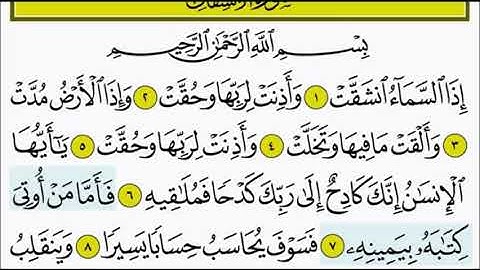 سورة الانشقاق
بِسْمِ ٱللَّهِ ٱلرَّحْمَٰنِ ٱلرَّحِيمِ
إِذَا ٱلسَّمَآءُ ٱنشَقَّتْ ١ وَأَذِنَتْ لِرَبِّهَا وَحُقَّتْ ٢ وَإِذَا ٱلْأَرْضُ مُدَّتْ
٣ وَأَلْقَتْ مَا فِيهَا وَتَخَلَّتْ ٤ وَأَذِنَتْ لِرَبِّهَا وَحُقَّتْ ٥ يَٰٓأَيُّهَا
ٱلْإِنسَٰنُ إِنَّكَ كَادِحٌ إِلَىٰ رَبِّكَ كَدْحًا فَمُلَٰقِيهِ ٦ فَأَمَّا مَنْ أُوتِىَ
كِتَٰبَهُۥ بِيَمِينِهِۦ ٧ فَسَوْفَ يُحَاسَبُ حِسَابًا يَسِيرًا ٨ وَيَنقَلِبُ